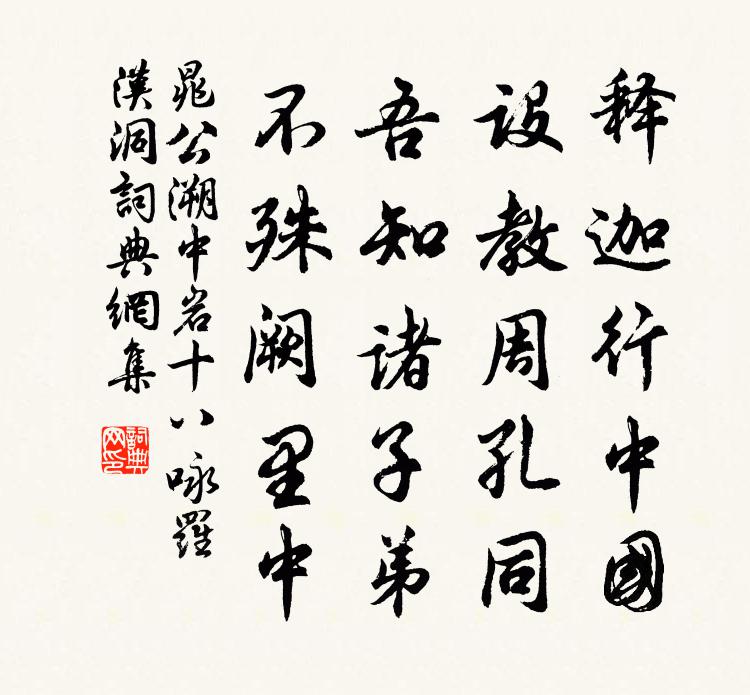 释迦行中國
設教周孔同
吾知諸子弟
不殊阙里中
晁公溯中岩十八咏羅
漢洞詞典網集
詞典
网印